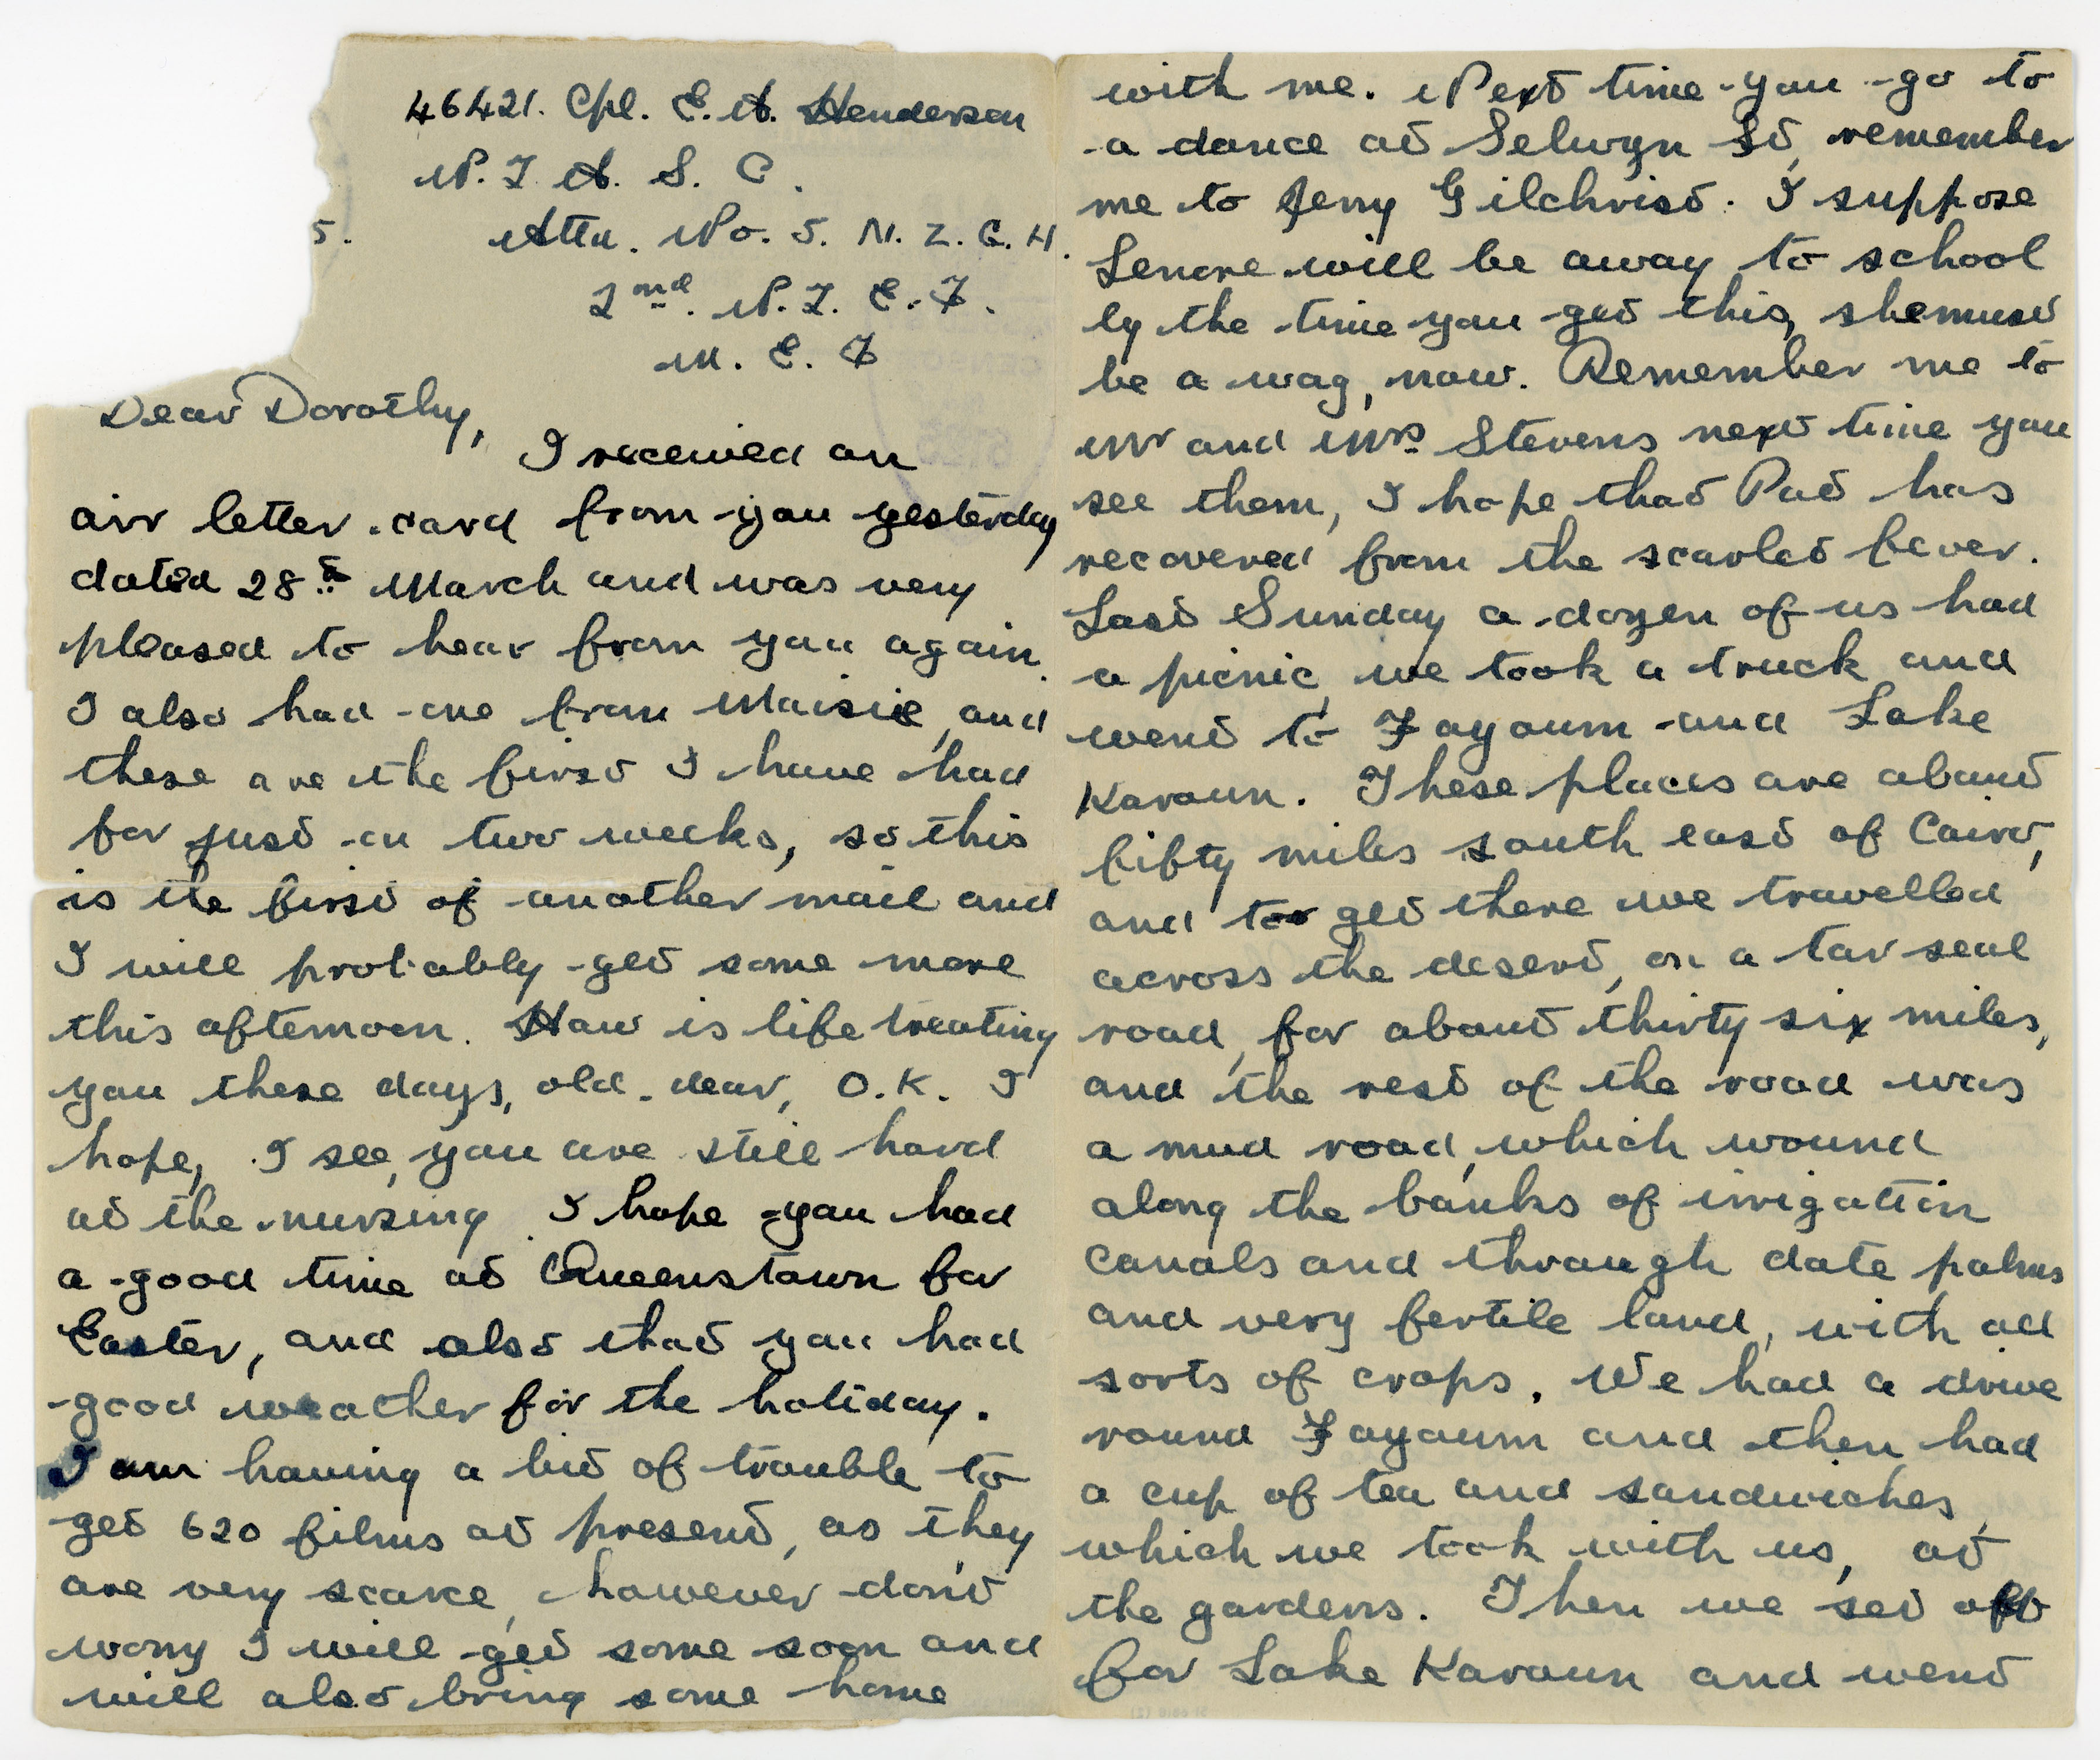 46421. Cpl. E. A. Henderson
N. Z. A. S. C.
5.
Attn. No. 5. N. Z. G. H.
2nd. N. Z. E. F.
M. E. F
Dear Dorothy,
I received an
air letter card from you yesterday
dated 28th March and was very
pleased to hear from you again.
I also had one from Maisie, and
these are the first I have had
for just on two weeks, so this
is the first of another mail and
I will probably get some more
this afternoon. How is life treating
you these days, old dear, O.K. I
hope, I see, you are still hard
at the nursing. I hope you had
a good time at Queenstown for
Easter, and also that you had
good weather for the holiday.
I am having a bit of trouble to
get 620 films at present, as they
are very scarce, however don't
worry I will get some soon and
will also bring some home
with me. Next time you go to
a dance at Selwyn St, remember
me to Jerry Gilchrist. I suppose
Lenore will be away to school
by the time you get this, she must
be a wag, now. Remember me to
Mr and Mrs Stevens next time you
see them, I hope that Pat has
recovered from the scarlet fever.
Last Sunday a dozen of us had
a picnic, we took a truck and
went to Fayoum and Lake
Karoun. These places are about
fifty miles south east of Cairo,
and to get there we travelled
across the desert, on a tar seal
road, for about thirty six miles,
and the rest of the road was
a mud road, which wound
along the banks of irrigation
canals and through date palms
and very fertile land, with all
sorts of crops. We had a drive
round Fayoum and then had
a cup of tea and sandwiches,
which we took with us, at
the gardens. Then we set off
for Lake Karoun and went